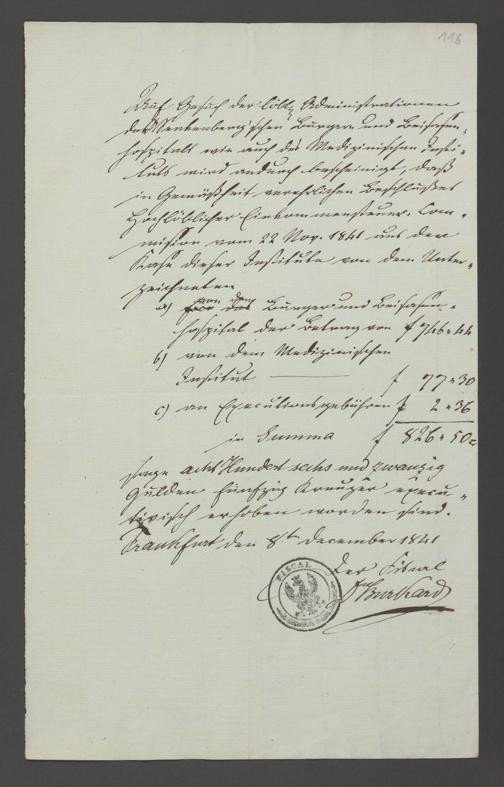 116
Auf Gesuch der löbl. Administrationen
des Senkenberg'schen Bürger und Beisassen-
hospitals wie auch des Medizinischen Insti-
tuts wird andurch bescheinigt, daß
in Gemäßheit verehrlichen Beschlußes
Hochlöblicher Einkommensteuer-Com-
mission vom 22 Nov. 1841 aus der
Kasse dieser Institute von dem Unter-
zeichneten
a) von dem Bürger und Beisassen-
hospital der Betrag von f 746 " 44
b) von dem Medizinischen
Institut f 77 " 30
c) an Executionsgebühren f 2 " 36
in Summa f 826 " 50
sage acht Hundert sechs und zwanzig
Gulden fünfzig Kreuzer execu-
tivisch erhoben worden sind.
Frankfurt den 8ten December 1841
Der Fiscal
Burkard
FISCAL